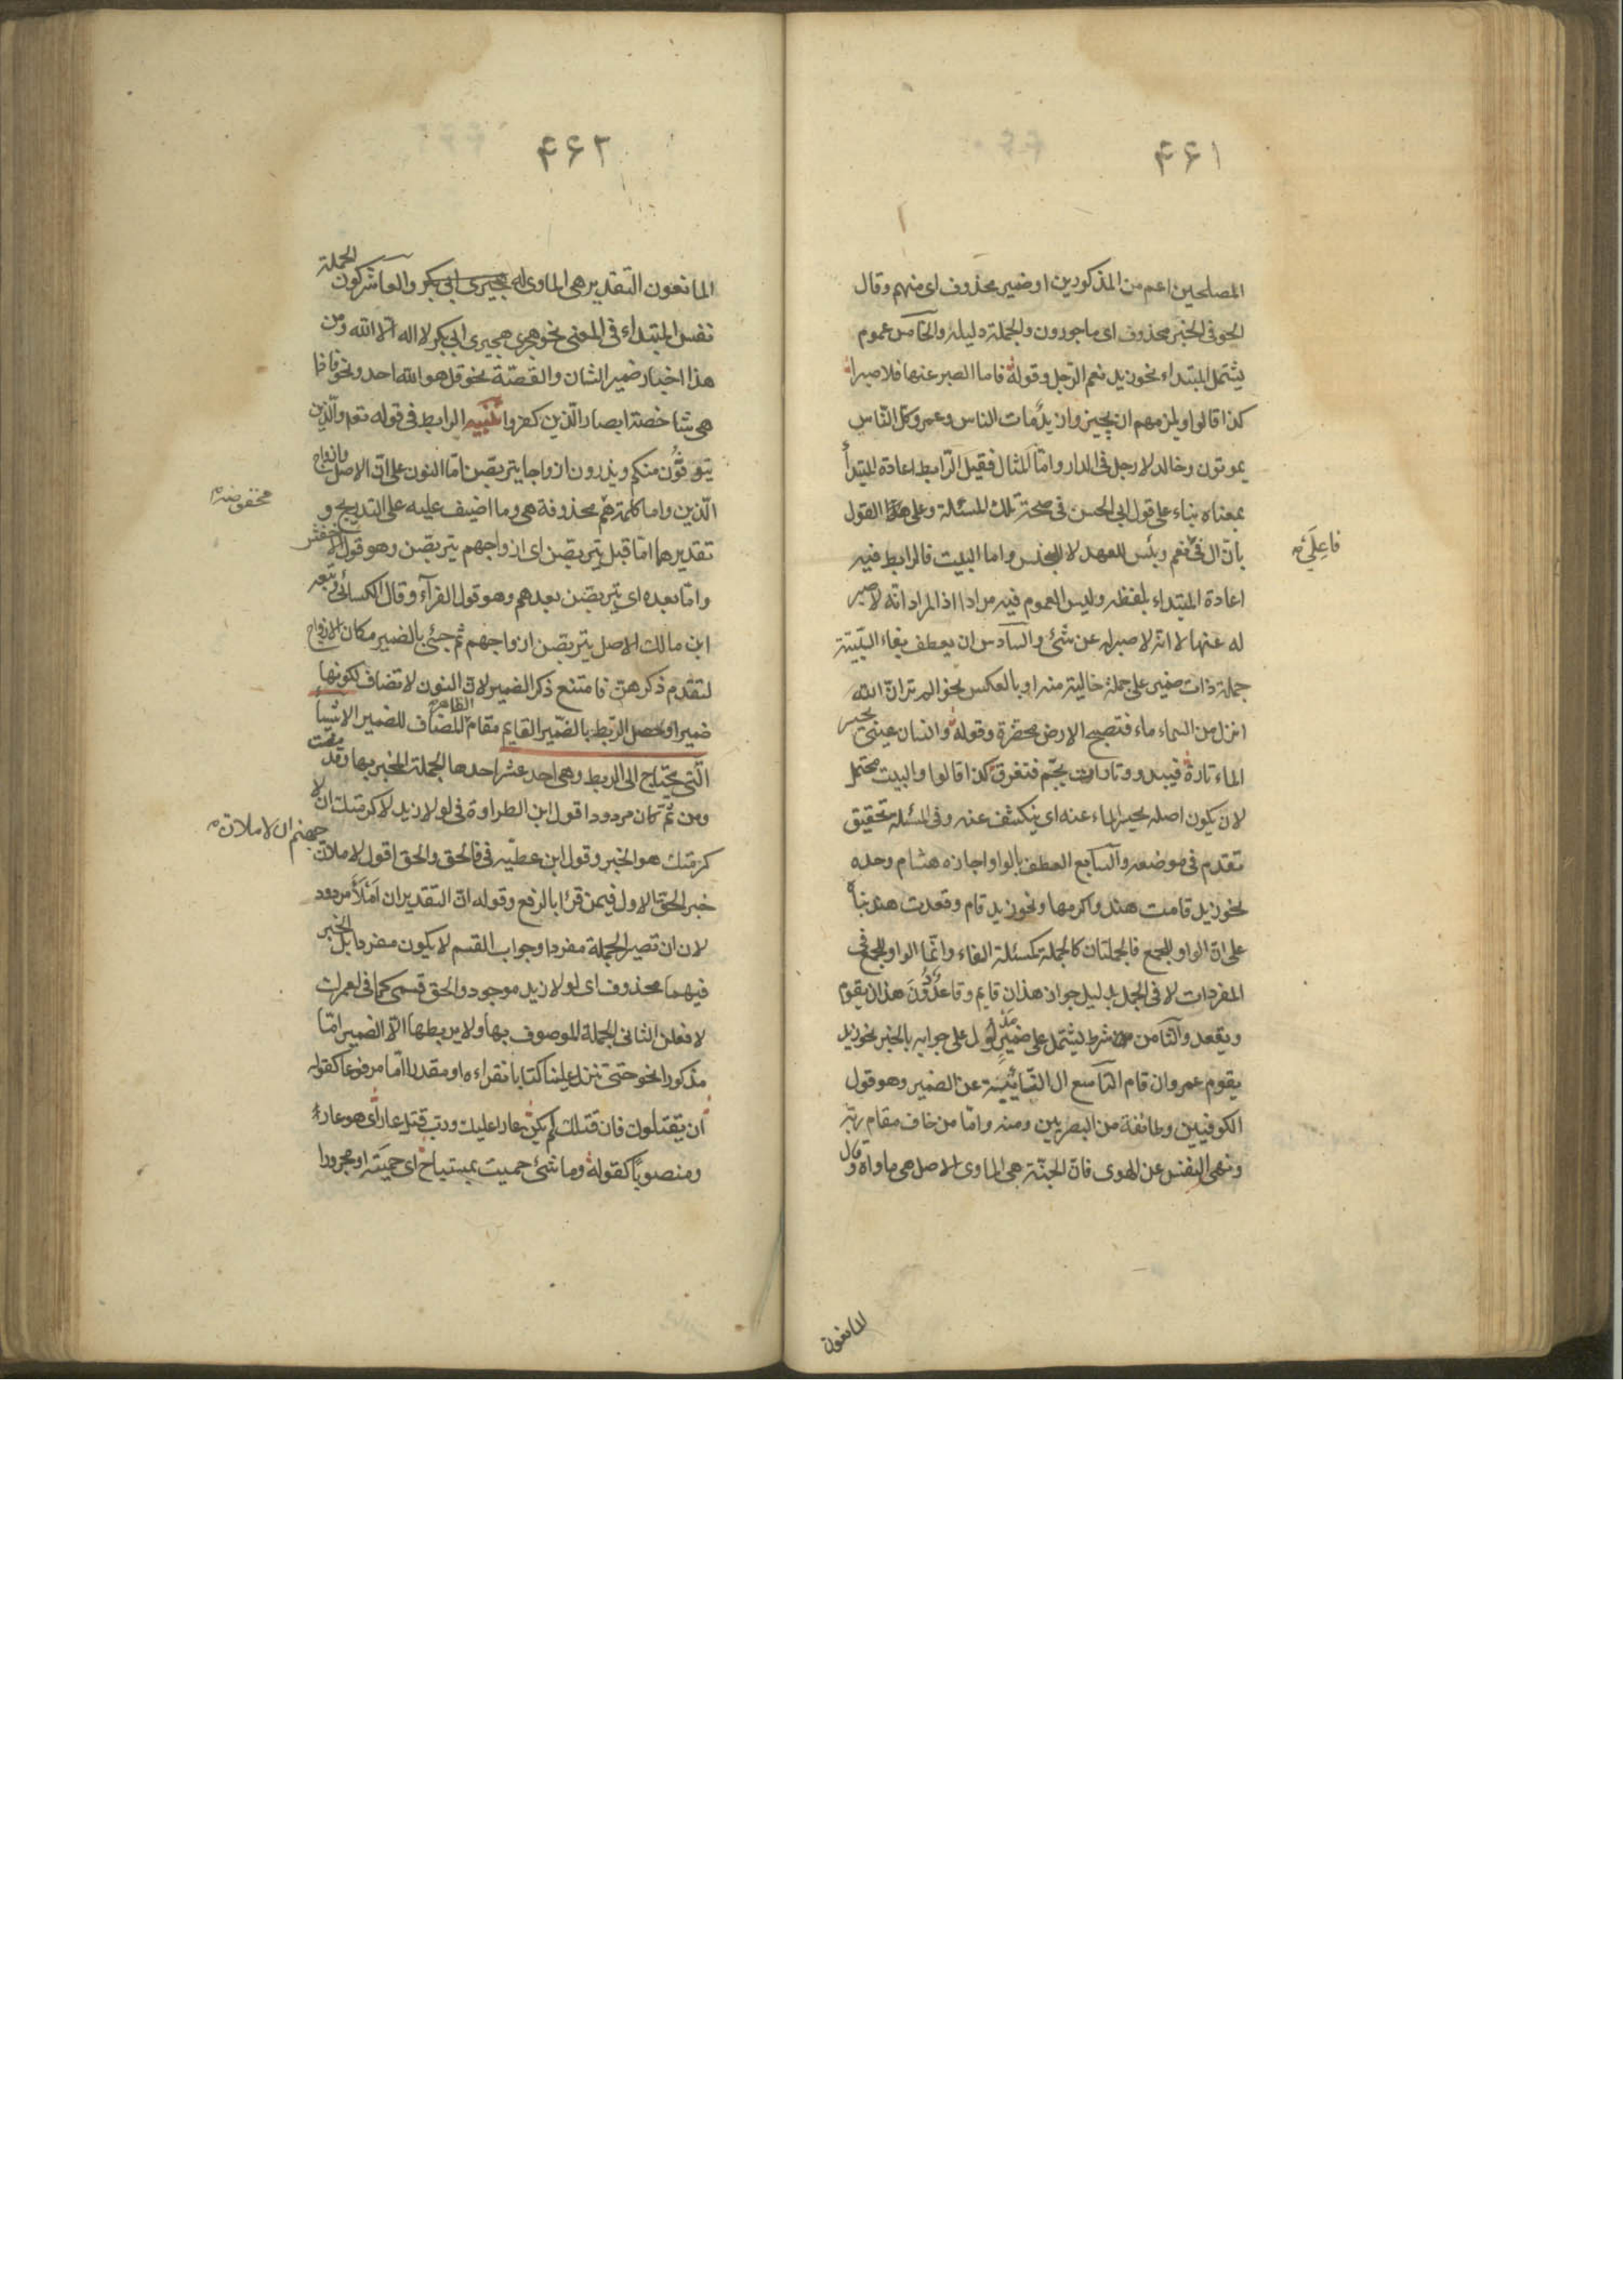 ۴۶۱
المصلحين اعم من المذكورين او ضمير محذوف اى منهم وقال
الحوفى الخبر محذوف اى ماجورون والجملة دليله والخامس عموم
يشتمل المبتداء نحو زيد نعم الرجل وقوله فاما الصبر عنها فلا صبرا
كذا قالوا ويلزمهم ان يجيزوا زيد مات الناس وعمرو كل الناس
يموتون وخالد لا رجل فى الدار واما المثال فقيل الرابط اعادة المبتدأ
بمعناه بناء على قول ابى الحسن فى صحة تلك المسئلة وعلى القول
بان ال فى نعم وبئس للعهد لا للجنس واما البيت فالرابط فيه
فاعلى
اعادة المبتداء بلفظه وليس العموم فيه مرادا اذ المراد انه لا صبر
له عنها لا انه لا صبر له عن شئ والسادس ان يعطف بفاء السببية
جملة ذات ضمير على جملة خالية منه او بالعكس نحو الم تر ان الله
انزل من السماء ماء فتصبح الارض مخضرة وقوله وانسان عينى يحسر
الماء تارة فيبدو وتارات يجم فتغرق كذا قالوا والبيت محتمل
لان يكون اصله يحسر الماء عنه اى ينكشف عنه وفى المسئلة تحقيق
تقدم فى موضعه والسابع العطف بالواو اجازه هشام وحده
نحو زيد قامت هند واكرمها ونحو زيد قام وقعدت هند بناء
على ان الواو للجمع فالجملتان كالجملة كمسئلة الفاء وانما الواو للجمع فى
المفردات لا فى الجمل بدليل جواز هذان قايم وقاعد دون هذان يقوم
ويقعد والثامن شرط يشتمل على ضمير مدلول على جوابه بالخبر نحو زيد
يقوم عمرو ان قام التاسع ال النائبية عن الضمير وهو قول
الكوفيين وطائفة من البصريين ومنه واما من خاف مقام ربه
ونهى النفس عن الهوى فان الجنة هى الماوى الاصل هى ماواه وقال
المانعون
۴۶۲
المانعون التقدير هى الماوى له هجيرى ابى بكر والعاشر كون الجملة
نفس المبتداء فى المعنى نحو هجيرى ابى بكر لا اله الا الله ومن
هذا اخبار ضمير الشان والقصة نحو قل هو الله احد ونحو فاذا
هى شاخصة ابصار الذين كفروا تنبيه الرابط فى قوله تعم والذين
يتوفون منكم ويذرون ازواجا يتربصن اما النون على ان الاصل وازواج
الذين واما كلمة هم محذوفة هى وما اضيف عليه على التدريج و
مخفوضة
تقديرهما اما قبل يتربصن اى ازواجهم يتربصن وهو قول الاخفش
واما بعده اى يتربصن بعدهم وهو قول الفرآء وقال الكسائى وتبعه
ابن مالك الاصل يتربصن ازواجهم ثم جئ بالضمير مكان الازواج
لتقدم ذكرهن فامتنع ذكر الضمير لان النون لا تضاف لكونها
ضميرا وحصل الربط بالضمير القايم مقام الظاهر المضاف للضمير الاشيآ
التى يحتاج الى الربط وهى احد عشر احدها الجملة المخبر بها وقد مضت
ومن ثم كان مردودا قول ابن الطراوة فى لولا زيد لاكرمتك ان لا
كرمتك هو الخبر وقول ابن عطيه فى فالحق والحق اقول لاملان
جهنم ان لاملان
خبر الحق الاول فيمن قرا بالرفع وقوله ان التقدير ان املأ مردود
لان ان تصير الجملة مفردا وجواب القسم لا يكون مفردا بل الخبر
فيهما محذوف اى لولا زيد موجود والحق قسمى كما فى لعمرك
لافعلن الثانى الجملة الموصوف بها ولا يربطها الا الضمير اما
مذكورا نحو حتى تنزل علينا كتابا نقراءه او مقدرا اما مرفوعا كقوله
ان يقتلوك فان قتلك لم يكن عارا عليك ورب قتل عار اى هو عار
ومنصوبا كقوله وما شئ حميت بمستباح اى حميته او مجرورا